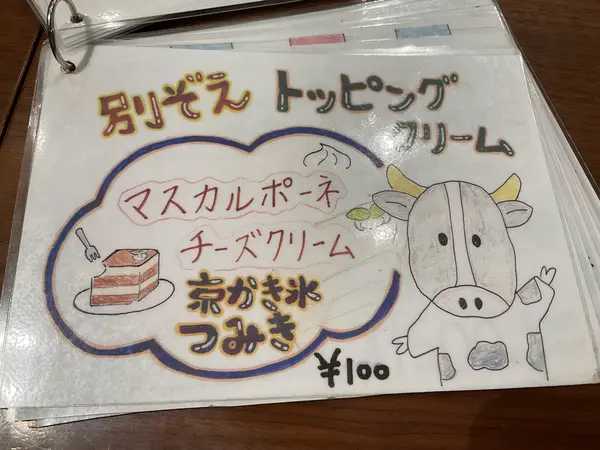 別ぞえ トッピング
クリーム
マスカルポーネ
チーズクリーム
京かき氷
つみき
¥100